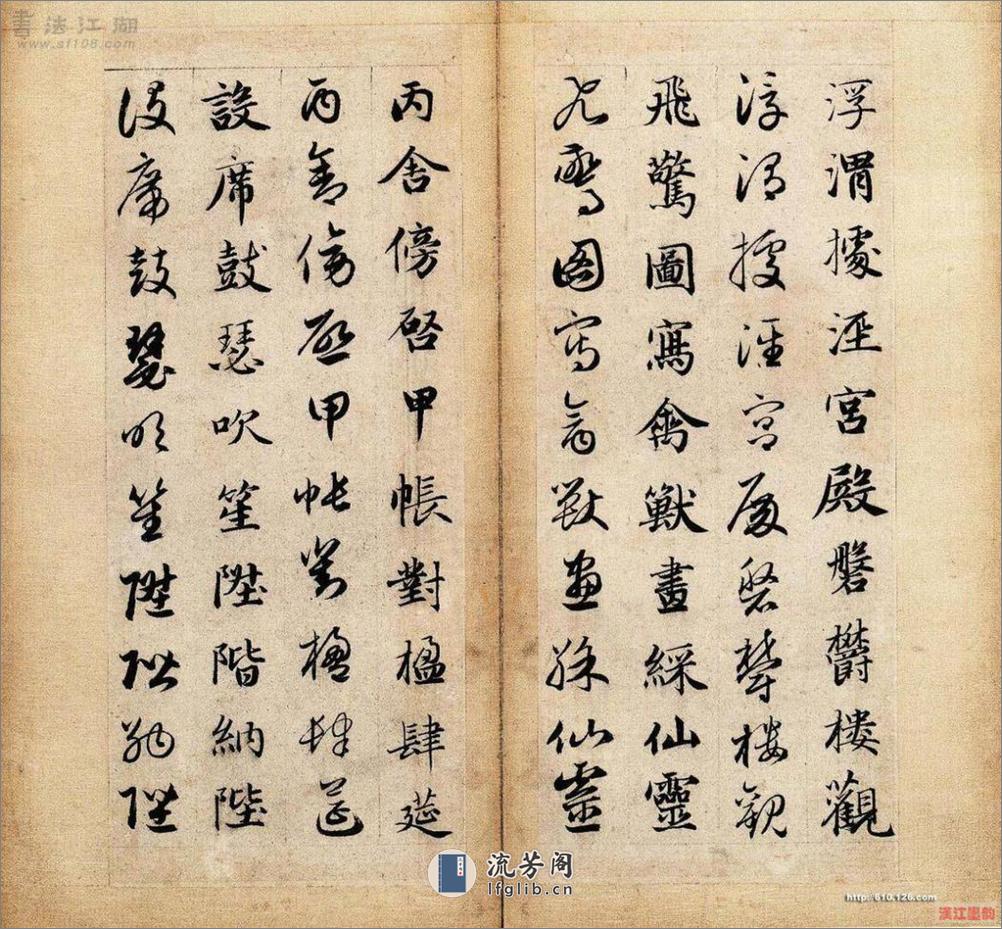 浮渭據涇宮殿磐欝樓觀
浮渭據涇宮殿磐欝樓觀
飛驚圖寫禽獸畫綵仙靈
飛驚圖寫禽獸畫綵仙靈
丙舍傍啓甲帳對楹肆莚
丙舍傍啓甲帳對楹肆莚
設席鼓瑟吹笙陞階納陛
設席鼓瑟吹笙陞階納陛
書法江湖
www.sf108.com
流芳阁
lfglib.cn
http://610.126.com
漢江墨韵